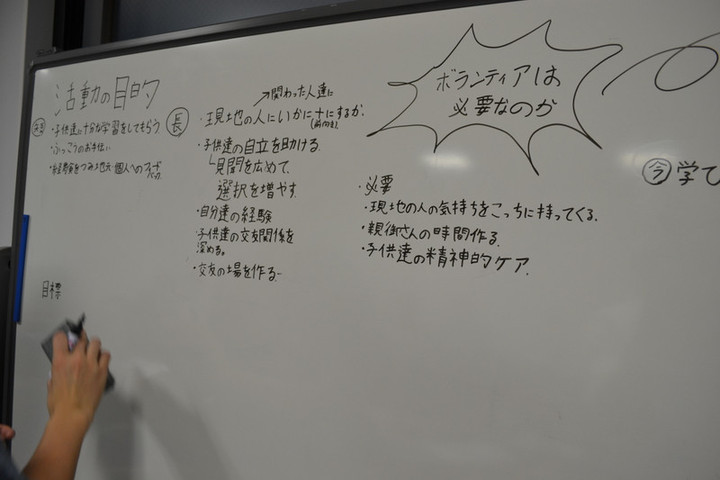 活動の目的
短
・子供達に十分な学習をしてもらう
・ふっこうのお手伝い
・経験をつみ地元・個人へのフィードバック
長
→関わった人達に
・現地の人にいかに+にするか。
(前向き)
・子供達の自立を助ける
見聞を広めて、
選択を増やす。
・自分達の経験
・子供達の交友関係を
深める。
・交友の場を作る。
目標
ボランティアは
必要なのか
・必要
・現地の人の気持ちをこっちに持ってくる。
・親御さんの時間作る。
・子供達の精神的ケア。
今 学て